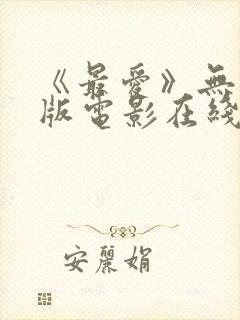 《最爱》無
版電影在綫
安麗娟